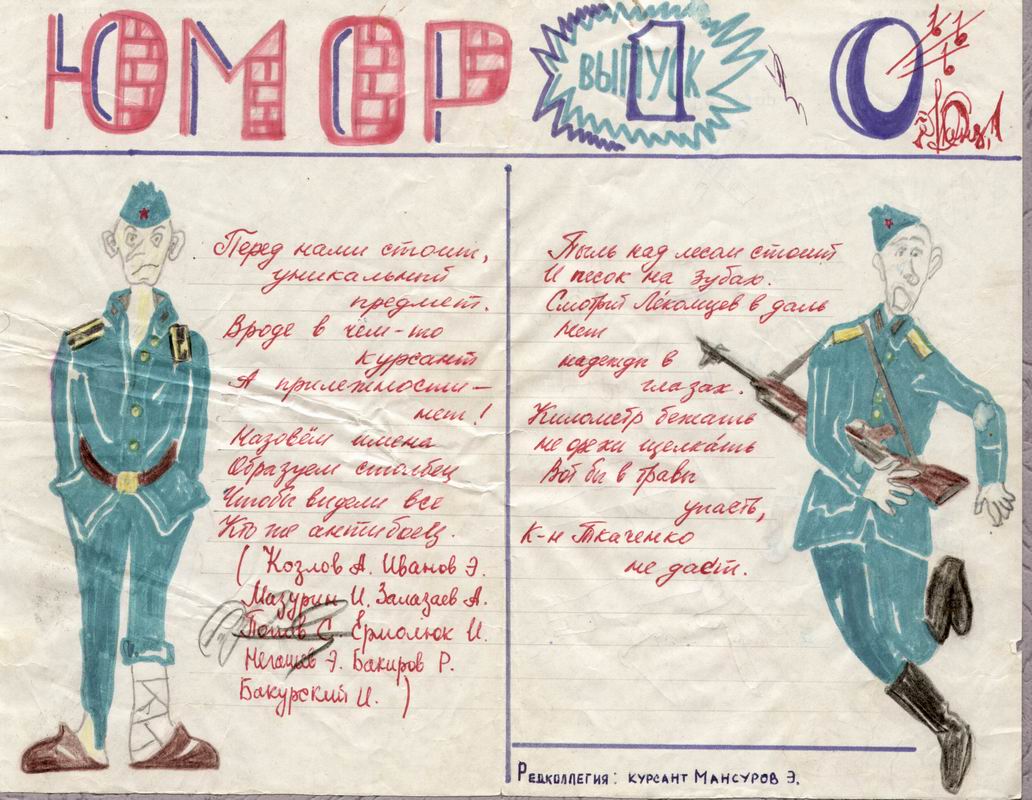 ЮМОР
ВЫПУСК 1
Перед нами стоит,
уникальный
предмет.
Вроде в чём-то
курсант
А прилежности-
нет!
Назовём имена
Образуем столбец
Чтобы видели все
Кто же антибоец.
(Козлов А. Иванов Э.
Мазурин И. Залазаев А.
Попов С. Ермолюк И.
Э. Бакиров Р.
Бакурский И.)
Пыль над лесом стоит
И песок на зубах.
Смотрит Лекомцев в даль
Нет
надежды в
глазах.
Километр бежать
не орехи щелкать
Вот бы в траву
упасть,
К-н Ткаченко
не даст.
Редколлегия: курсант Мансуров Э.